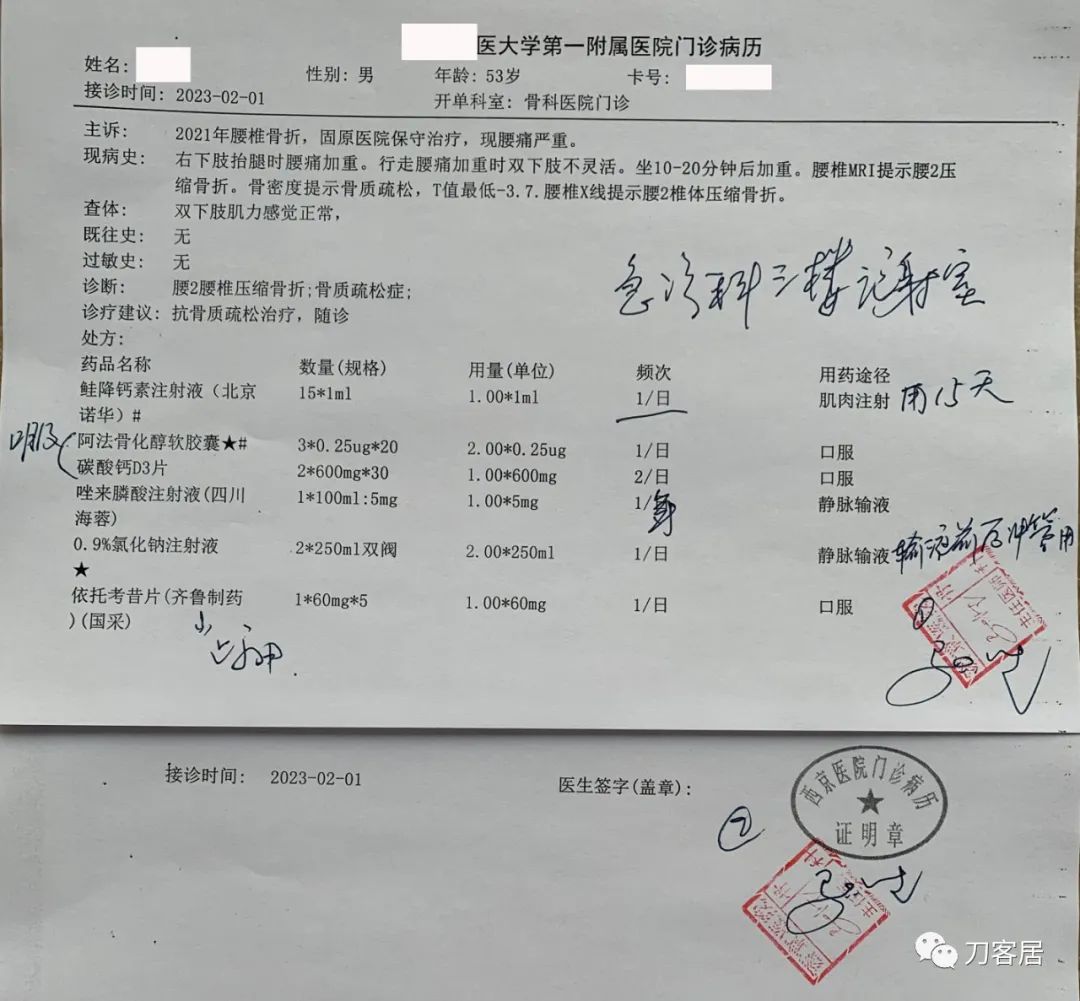 医大学第一附属医院门诊病历
姓名:
性别: 男 年龄: 53岁 卡号:
接诊时间: 2023-02-01 开单科室: 骨科医院门诊
主诉: 2021年腰椎骨折, 固原医院保守治疗, 现腰痛严重。
现病史: 右下肢抬腿时腰痛加重。行走腰痛加重时双下肢不灵活。坐10-20分钟后加重。腰椎MRI提示腰2压
缩骨折。骨密度提示骨质疏松, T值最低-3.7.腰椎X线提示腰2椎体压缩骨折。
查体: 双下肢肌力感觉正常,
既往史: 无
过敏史: 无
诊断: 腰2腰椎压缩骨折;骨质疏松症;
诊疗建议: 抗骨质疏松治疗, 随诊
急诊科三楼记射室
处方:
药品名称 数量(规格) 用量(单位) 频次 用药途径
鲑降钙素注射液 (北京 15*1ml 1.00*1ml 1/日 肌肉注射 用15天
诺华) #
口服
阿法骨化醇软胶囊★# 3*0.25ug*20 2.00*0.25ug 1/日 口服
碳酸钙D3片 2*600mg*30 1.00*600mg 2/日 口服
唑来膦酸注射液(四川 1*100ml:5mg 1.00*5mg 1/ 静脉输液
海蓉)
0.9%氯化钠注射液 2*250ml双阀 2.00*250ml 1/日 静脉输液 输液前后冲管用
★
依托考昔片(齐鲁制药 1*60mg*5 1.00*60mg 1/日 口服
)(国采)
①
主任医师
接诊时间: 2023-02-01 医生签字(盖章):
西京医院门诊病历
证明章
②
刀客居